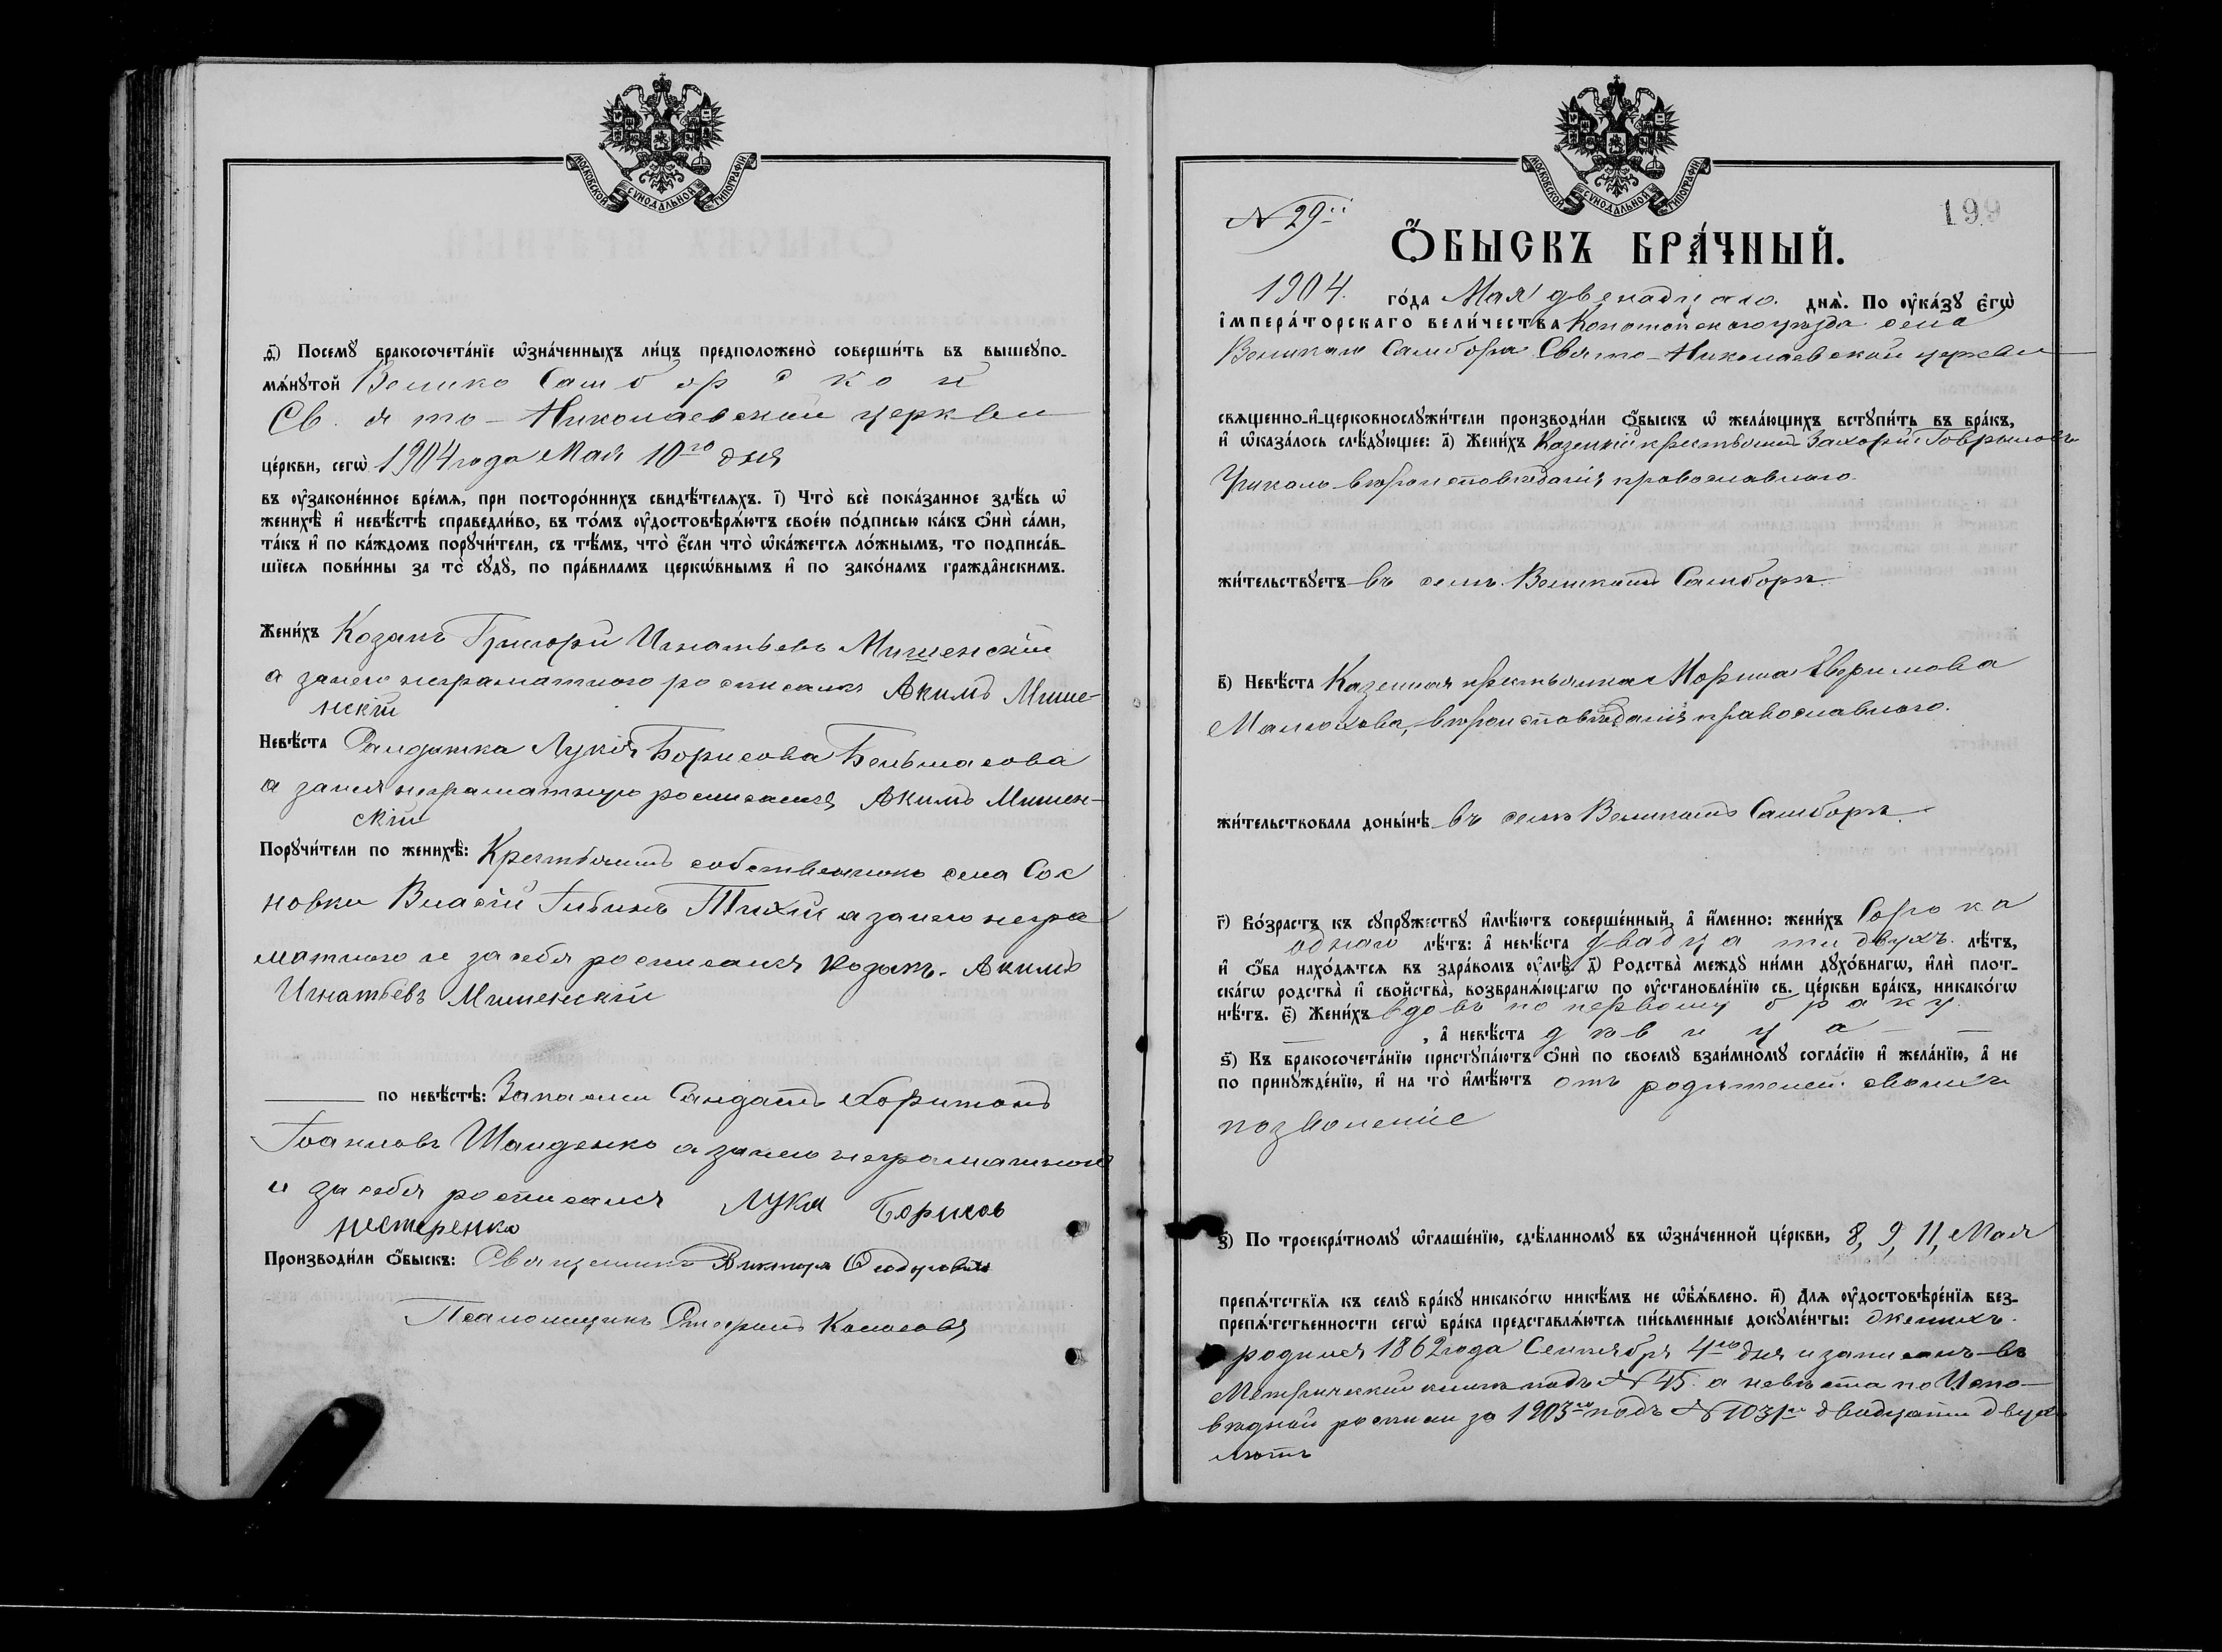 МОСКОВСКОЙ СѴНОДАЛЬНОЙ ТИПОГРАФІИ
ѳ҃) Посемꙋ̀ бракосочета́нїе ѡ҆зна́ченныхъ ли́цъ предположено̀ соверши́ть въ вышеꙋпо-
мѧ́нꙋтой Велико Самборской
Свято-Николаевской церкви
це́ркви, сегѡ̀ 1904 года Мая 10го дня
въ ᲂу҆законе́нное вре́мѧ, при посторо́ннихъ свидѣ́телѧхъ. і҃) Что̀ всѐ пока́занное здѣ́сь ѡ҆
женихѣ̀ и҆ невѣ́стѣ справедли́во, въ то́мъ ᲂу҆достовѣрѧ́ютъ свое́ю по́дписью ка́къ ѻ҆нѝ са́ми,
та́къ и҆ по ка́ждомъ порꙋчи́тели, съ тѣ́мъ, что̀ є҆́сли что̀ ѡ҆ка́жетсѧ ло́жнымъ, то подписа́в-
шїесѧ пови́нны за то̀ сꙋдꙋ̀, по пра́виламъ церкѡ́внымъ и҆ по зако́намъ гражда̑нскимъ.
Жени́хъ Козакъ Григорій Игнатьевъ Мишенскій
а за него неграматного росписался Акимъ Мише-
нскій
Невѣ́ста Солдатка Лукія Борисова
а за нея неграматную росписался Акимъ Мишен-
скій
Порꙋчи́тели по женихѣ̀: Крестьянинъ собственникъ села Сос
новки Власій Тихій а за него негра
матного и за себя росписался Козакъ Акимъ
Игнатьевъ Мишенскій
по невѣ́стѣ: Запасный Солдатъ Харитонъ
Іоанновъ а за него неграматного
и за себя росписался Лука Борисов
нестеренко
Производи́ли ѻ҆́быскъ: Священникъ Викторъ Ѳедоровскій
Псаломщикъ Колосовъ
МОСКОВСКОЙ СѴНОДАЛЬНОЙ ТИПОГРАФІИ
№ 29й
199
Ѻ҆БЫСКЪ БРА́ЧНЫЙ.
1904 го́да Мая двенадцато днѧ̀. По ᲂу҆ка́зꙋ є҆гѡ̀
і҆мпера́торскаго вели́чества Конотопского уезда села
Великого Самбора Свято-Николаевской церкви
свѧщенно-и҆-церковнослꙋжи́тели производи́ли ѻ҆́быскъ ѡ҆ жела́ющихъ встꙋпи́ть въ бра́къ,
и҆ ѡ҆каза́лось слѣ́дꙋющее: а҃) Жени́хъ Казенный крестьянинъ Захорій Гавриловъ
вѣроисповѣданія православного.
жи́тельствꙋетъ въ селѣ Великомъ Самборѣ
в҃) Невѣ́ста Казенная крестьянка Марина Ефримова
вѣроисповѣданія православного.
жи́тельствовала доны́нѣ въ селѣ Великомъ Самборѣ.
г҃) Во́зрастъ къ сꙋпрꙋ́жествꙋ и҆мѣ́ютъ соверше́нный, а҆ и҆́менно: жени́хъ Сорока
одного лѣ́тъ: а҆ невѣ́ста двадцати двухъ лѣ́тъ,
и҆ ѻ҆́ба нахо́дѧтсѧ въ здра́вомъ ᲂу҆мѣ̀. д҃) Родства̀ междꙋ̀ ни́ми дꙋхо́внагѡ, и҆лѝ плот-
ска́гѡ родства̀ и҆ сво́йства̀, возбранѧ́ющагѡ по ᲂу҆становле́нїю св. це́ркви бра́къ, никако́гѡ
нѣ́тъ. є҃) Жени́хъ вдовъ по первому браку
, а҆ невѣ́ста дѣвица
ѕ҃) Къ бракосочета́нїю пристꙋпа́ютъ ѻ҆нѝ по своемꙋ̀ взаи́мномꙋ согла́сїю и҆ жела́нїю, а҆ не
по принꙋжде́нїю, и҆ на то̀ и҆мѣ́ютъ отъ родителей своихъ
позволеніе
з҃) По троекра́тномꙋ ѡ҆глаше́нїю, сдѣ́ланномꙋ въ ѡ҆зна́ченной це́ркви, 8, 9, 11, Мая
препѧ́тствїѧ къ семꙋ̀ бра́кꙋ никако́гѡ никѣ́мъ не ѡ҆б̾ѧ́влено. и҃) Длѧ ᲂу҆достовѣре́нїѧ без-
препѧ́тственности сегѡ̀ бра́ка представлѧ́ютсѧ пи́сьменные докꙋме́нты: жених
родился 1862 года Сентября 4го дня и записанъ въ
Метрической книгѣ подъ № 45. а невѣста по Испо-
вѣдной росписи за 1903й подъ № 103м двадцати двухъ
лѣтъ